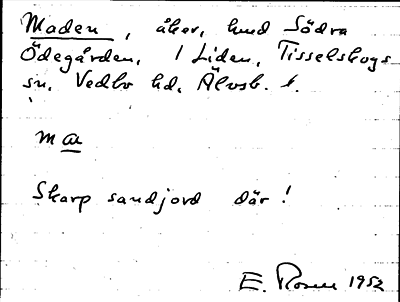 Maden, åker, hmd Södra
Ödegården, 1 Liden, Tisselskogs
sn. Vedbo hd. Älvsb. l.
m a
Skarp sandjord där!
E. Rosen 1952